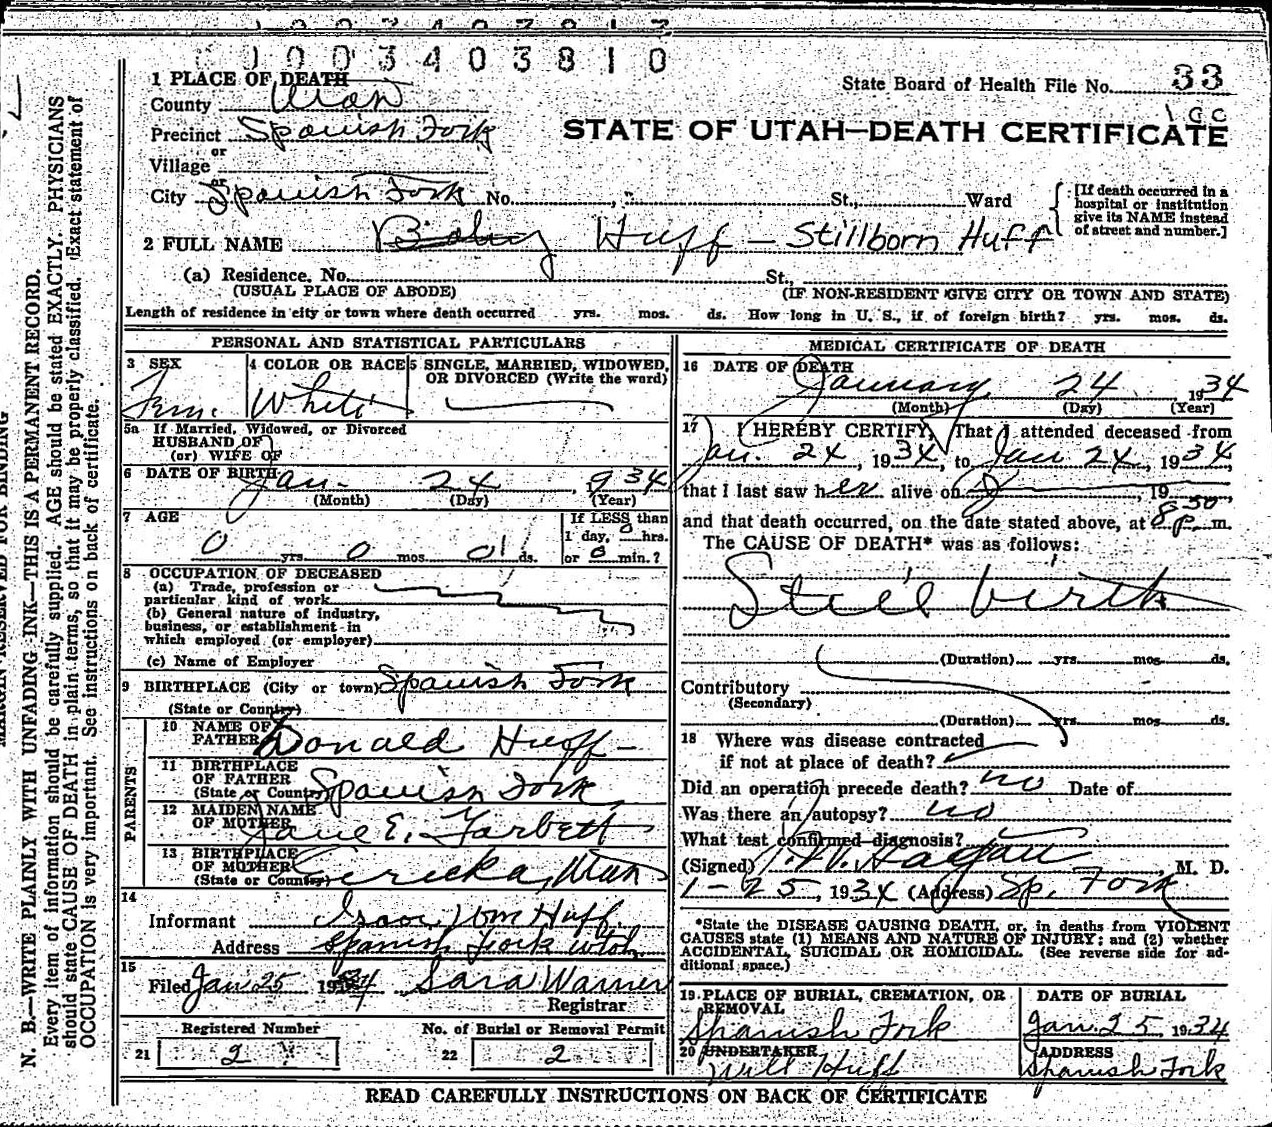 1003403810
State Board of Health File No. 33
1 PLACE OF DEATH
County Utah
Precinct Spanish Fork
or
Village
or
City Spanish Fork No. St., Ward
STATE OF UTAH—DEATH CERTIFICATE
[If death occurred in a
hospital or institution
give its NAME instead
of street and number.]
2 FULL NAME Baby Huff — Stillborn Huff
(a) Residence. No. St.,
(USUAL PLACE OF ABODE) (IF NON-RESIDENT GIVE CITY OR TOWN AND STATE)
Length of residence in city or town where death occurred yrs. mos. ds. How long in U. S., if of foreign birth? yrs. mos. ds.
PERSONAL AND STATISTICAL PARTICULARS
3 SEX 4 COLOR OR RACE 5 SINGLE, MARRIED, WIDOWED,
OR DIVORCED (Write the word)
Fem. White
5a If Married, Widowed, or Divorced
HUSBAND OF
(or) WIFE OF
6 DATE OF BIRTH Jan. 24, 1934
(Month) (Day) (Year)
7 AGE If LESS than
1 day, 0 hrs.
0 yrs. 0 mos. 0 ds. or 0 min.?
8 OCCUPATION OF DECEASED
(a) Trade, profession or
particular kind of work
(b) General nature of industry,
business, or establishment in
which employed (or employer)
(c) Name of Employer
9 BIRTHPLACE (City or town) Spanish Fork
(State or Country)
PARENTS
10 NAME OF
FATHER Donald Huff
11 BIRTHPLACE
OF FATHER
(State or Country) Spanish Fork
12 MAIDEN NAME
OF MOTHER Jane E. Farbett
13 BIRTHPLACE
OF MOTHER
(State or Country) Eureka, Utah
14
Informant Isaac Wm Huff.
Address Spanish Fork Utah.
15
Filed Jan 25 1934 Sara Warner
Registrar
Registered Number No. of Burial or Removal Permit
21 2 22 2
MEDICAL CERTIFICATE OF DEATH
16 DATE OF DEATH
January 24 1934
(Month) (Day) (Year)
17 I HEREBY CERTIFY, That I attended deceased from
Jan. 24, 1934, to Jan 24, 1934,
that I last saw her alive on , 19
and that death occurred, on the date stated above, at 8 30 p. m.
The CAUSE OF DEATH* was as follows:
Still birth
(Duration) yrs. mos. ds.
Contributory
(Secondary)
(Duration) yrs. mos. ds.
18 Where was disease contracted
if not at place of death?
Did an operation precede death? no Date of
Was there an autopsy? no
What test confirmed diagnosis?
(Signed) Hagan, M. D.
1-25, 1934 (Address) Sp. Fork
*State the DISEASE CAUSING DEATH, or, in deaths from VIOLENT
CAUSES state (1) MEANS AND NATURE OF INJURY; and (2) whether
ACCIDENTAL, SUICIDAL OR HOMICIDAL. (See reverse side for ad-
ditional space.)
19 PLACE OF BURIAL, CREMATION, OR DATE OF BURIAL
REMOVAL
Spanish Fork Jan. 25 1934
20 UNDERTAKER ADDRESS
Will Huff Spanish Fork
READ CAREFULLY INSTRUCTIONS ON BACK OF CERTIFICATE
MARGIN RESERVED FOR BINDING
N. B.—WRITE PLAINLY WITH UNFADING INK—THIS IS A PERMANENT RECORD.
Every item of information should be carefully supplied. AGE should be stated EXACTLY. PHYSICIANS
should state CAUSE OF DEATH in plain terms, so that it may be properly classified. Exact statement of
OCCUPATION is very important. See instructions on back of certificate.